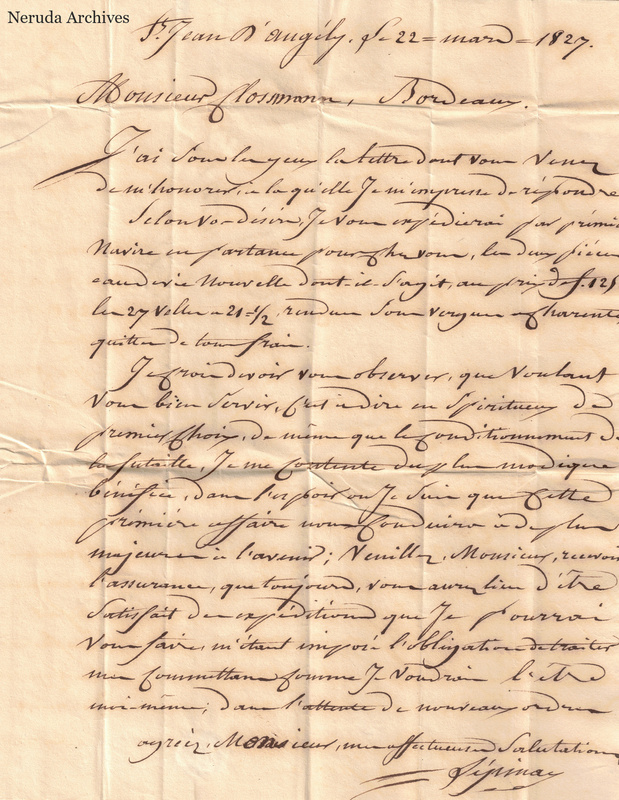 Neruda Archives
St. Jean D'angély. Le 22 = mars = 1827.
Monsieur Clossmann, Bordeaux.
J'ai Sous les yeux la lettre dont vous venez
de m'honorer, a la qu'elle Je m'empresse de répondre
Selon vos désirs, Je vous expédierai par prémier
Navire en partance pour chez vous, les deux pièces
eaudevie Nouvelle dont il S'agit, au prix de f. 125
les 27 veltes a 21 1/2, rendues Sous vergues a Charente
quittes de tous frais.
Je Crois devoir vous observer, que Voulant
Vous bien Servir, C'est à dire en Spiritueux de
premier Choix, de même que le Conditionnement de
la futaille, Je me Contente du plus modique
bénéfice, dans l'espoir où Je Suis que Cette
prémiére affaire nous Conduira à de plus
majeures à l'avenir; Veuillez, Monsieur, recevoir
l'assurance, que toujours, vous aurez lieu d'être
Satisfait des expéditions que Je pourrai
Vous faire, m'étant imposé l'obligation de traiter
mes Commettans Comme Je Voudrais l'être
moi-même; dans l'attente de nouveaux ordres
agréez, Monsieur, mes affectueuses Salutations